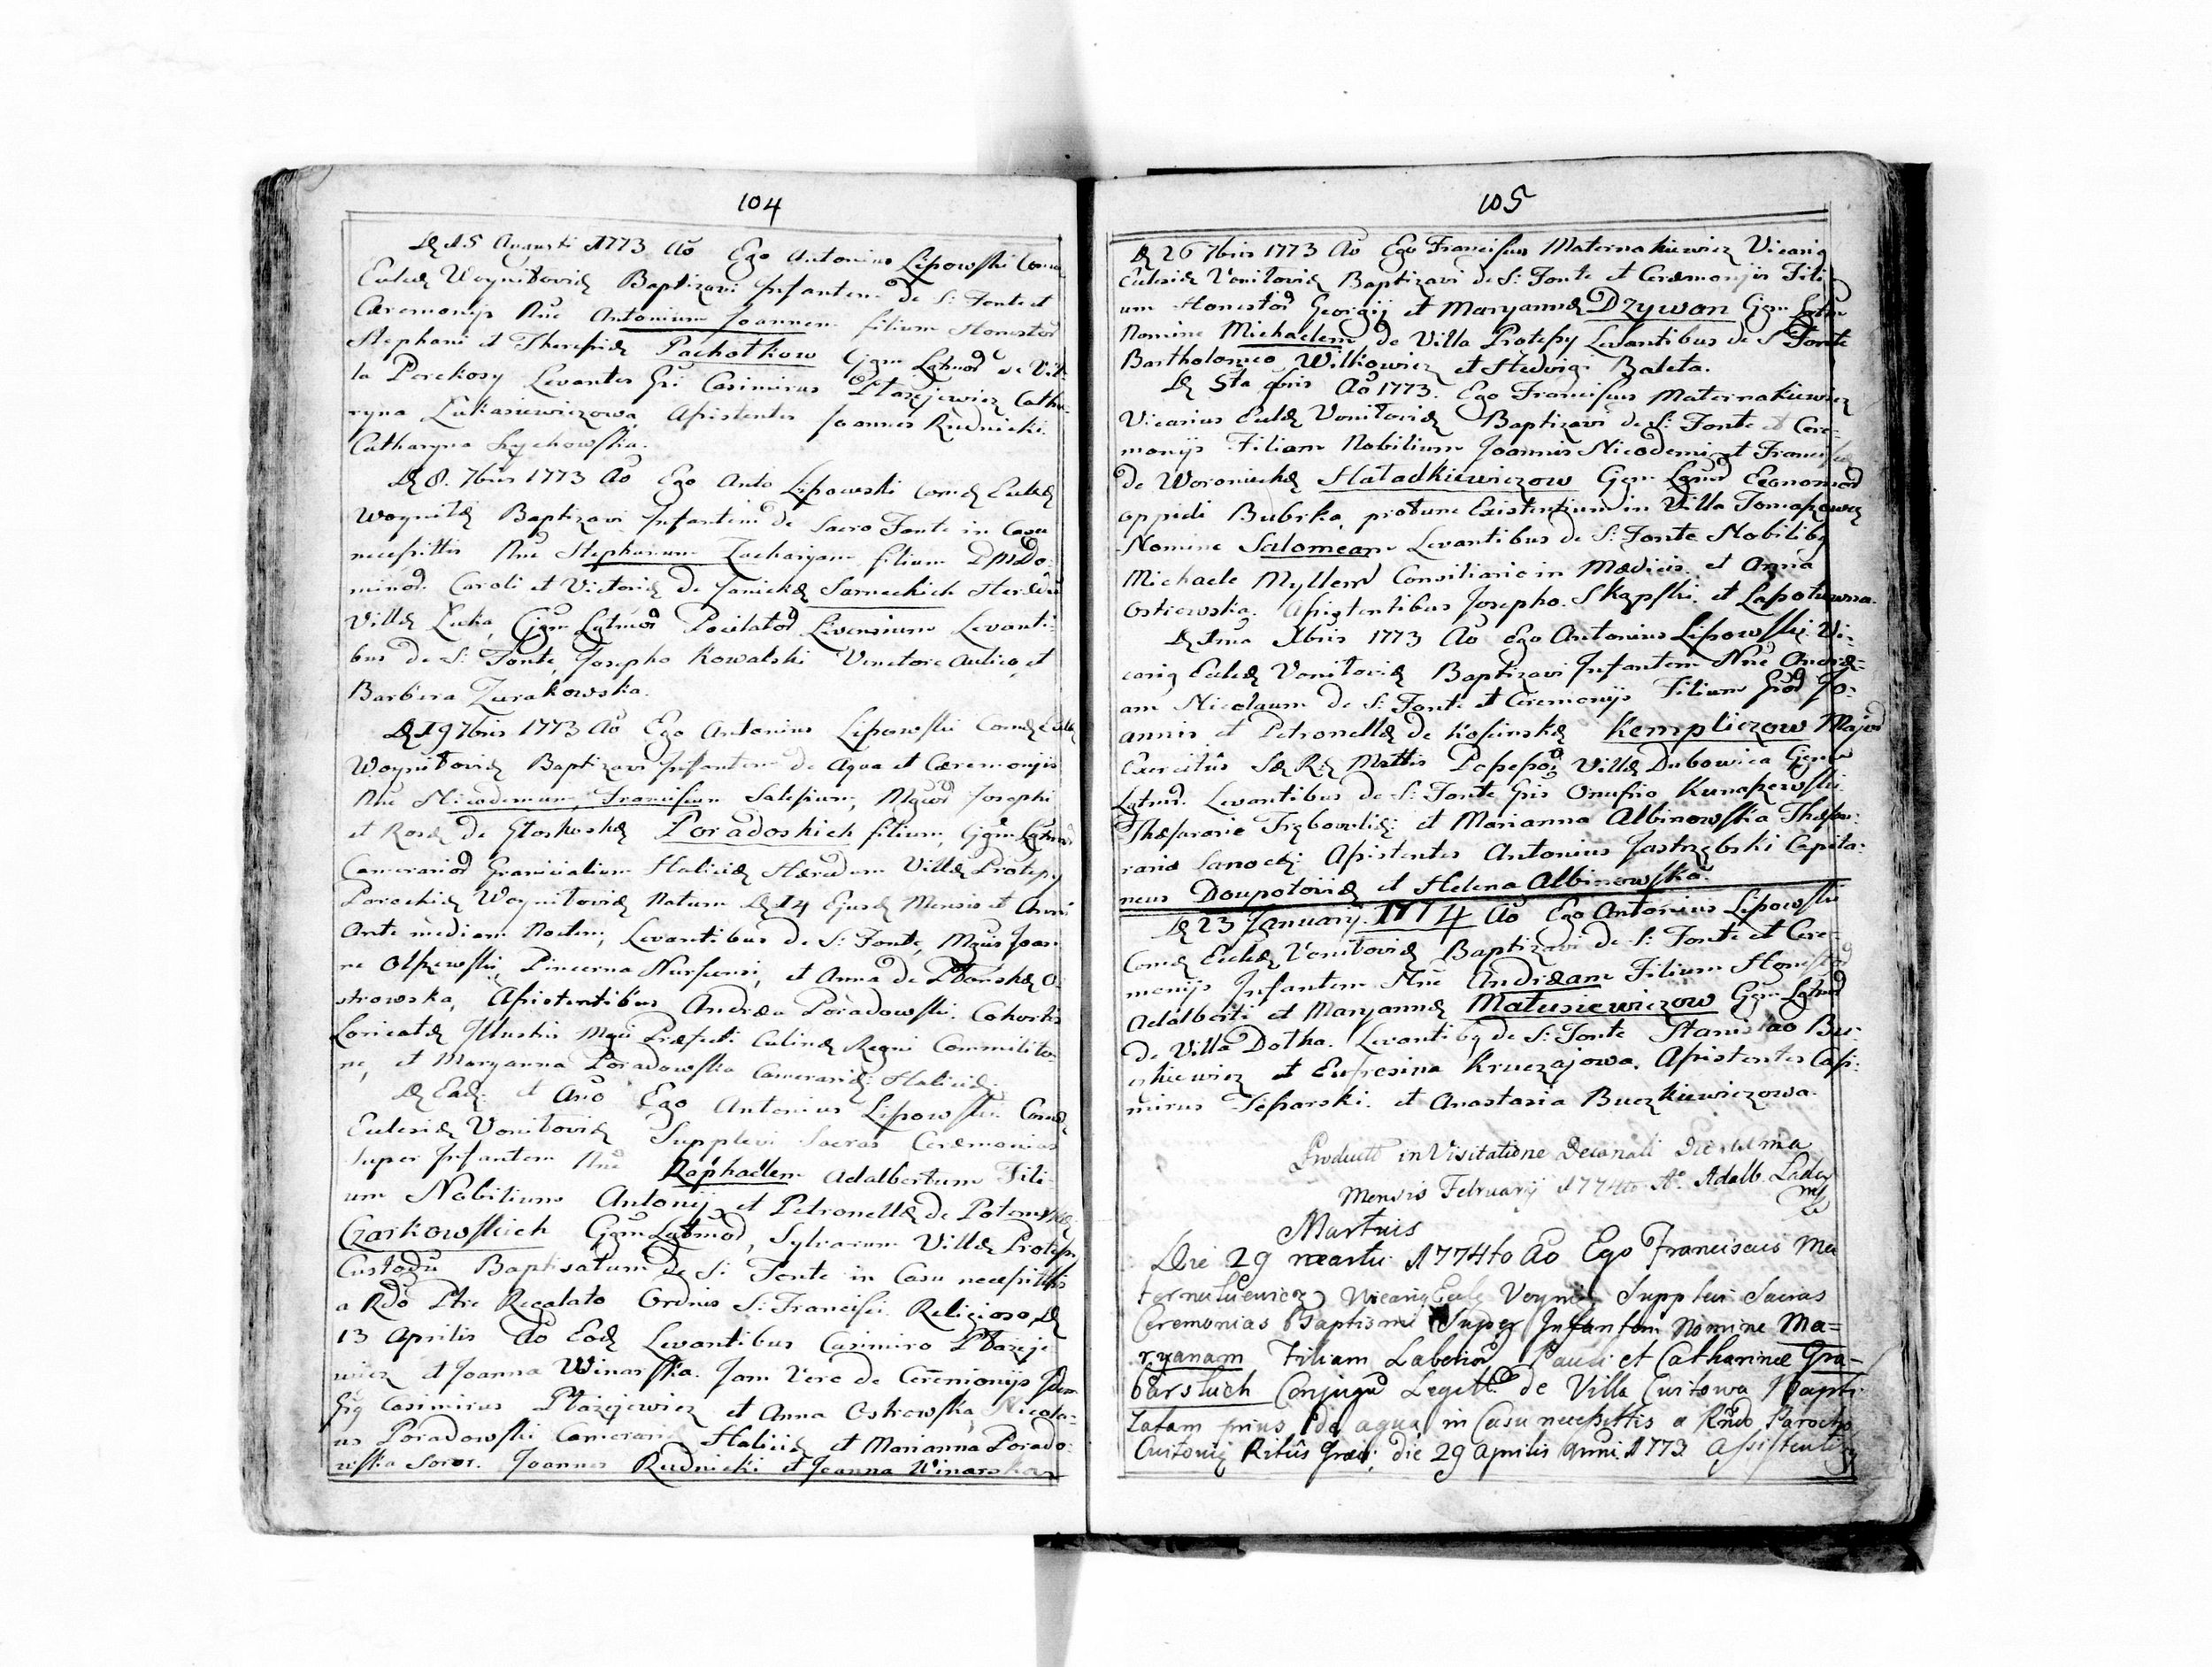 104
D 15 Augusti 1773 Ao Ego Antonius Lipowski Com
Eccles Woynitoviæ Baptizavi Infantem de S: Fonte et
Cæremonijs Nne Antonium Joannem filium Honestor
Stephani et Theresiæ Pachotkow Cjgm Lgtmor de Vil
la Perekosy Levantes Gri Casimirus Płazejewicz Catha
ryna Łukasiewiczowa, Assistentes Joannes Rudnicki.
Catharyna Łychowska.
D 8. 7bris 1773 Ao Ego Anto Lipowski Comd Eccles
Woynitæ Baptizavi Infantem de Sacro Fonte in Casu
necessittis Nne Stephanum Zacharyam filium
minor. Caroli et Victoriæ de Janickæ Sarneckich
Villæ Łuka, Cjgm Lgtmor Levanti
bus de S: Fonte Josepho Kowalski Venatore Aulico, et
Barbara Żurakowska.
D 19 7bris 1773 Ao Ego Antonius Lipowski Comd
Woynitoviæ Baptizavi Infantem de Aqua et Cæremonijs
Nne Nicodemum, Franciscum Salesium, Mgcor Josephi
et Rosæ de Głoskoskæ Poradoskich filium, Cjgm Lgtmor
Camerarior Granicialium Haliciæ Hæredum Villæ Protesy
Parochiæ Woynitoviæ Natum D 14 Ejusd Mensis et Anni
Ante mediam Noctem, Levantibus de S: Fonte, Mgcis Joan
ne Olszewski Pincerna Nursensi, et Anna de Płonskæ O
strowska, Assistentibus Andrea Poradowski. Cohortis
Loricatæ Illustris Mgci Præfecti Culinæ Regni Commilito
ne, et Maryanna Poradowska Camerarid: Halicid:
D Ead: et Ano Ego Antonius Lipowski Comd
Ecclesiæ Vonitoviæ Supplevi Sacras Ceremonias
Super Infantem Nne Raphaelem Adalbertum Fili
um Nobilium Antonij et Petronellæ de
Czarkowskich Cjgm Lgtmor, Sylvarum Villæ Protesy
Custodu Baptisatum de S: Fonte in Casu necessittis
a Rdo Ptre Regalato Ordnis S: Francisci Religioso, D
13 Aprilis Ao Eod Levantibus Casimiro Płazeje
wicz et Joanna Winarska. Jam Vero de Ceremonijs Idem
Casimirus Płazejewicz et Anna Ostrowska, Nicola=
us Poradowski Camerari Haliciæ et Marianna Porado=
wska Soror. Joannes Rudnicki et Joanna Winarska
105
D 26 7bris 1773 Ao Ego Franciscus Maternakiewicz Vicari
Eclesiæ Vonitoviæ Baptizavi de S: Fonte et Ceræmonijs Fili
um Honestor Georgij et Maryannæ Dzywon Cjgm Lgtm
Nomine Michaelem de Villa Protesy Levantibus de S Fonte
Bartholomeo Wilkowicz et Hedvigi Baleta.
D 5ta 9bris Ao 1773. Ego Franciscus Maternakiewicz
Vicarius Ecclæ Vonitoviæ Baptizavi de S: Fonte et Cere=
monijs Filiam Nobilium Joannis Nicodemi et Francisc
de Woronieckæ Hatadkiewiczow Cjgm Lgmd Economor
oppidi Bubrka, protunc Existentium in Villa
Nomine Salomeam Levantibus de S: Fonte Nobilib
Michaele Myller Consiliario in Mædicis. et Anna
Ostrowska. Assistentibus Josepho. Skąpski et Łapotuwna.
D 1ma Xbris 1773 Ao Ego Antonius Lipowski. Vi=
cari Ecclæ Vonitoviæ Baptizavi Infantem Nne Andræ=
am Nicolaum de S: Fonte et Ceremonijs Filium Jo=
annis et Petronellæ de Kosinskæ Kempliczow Major
Exercitûs Sæ Ræ Mattis Villæ Dubowica Cjgm
Lgtmd. Levantibus de S: Fonte Gris Onufrio Kunaszewski
Thæsarario Trębowlid: et Marianna Albinowska Thesau=
raria Sanocd: Assistentes Antonius Jastrzębski Capita=
neus Doupotoviæ et Helena Albinowska.
D 23 January. 1774 Ao Ego Antonius Lipowski
Comd Ecclæ Vonitoviæ Baptizavi de S: Fonte et Cere=
monijs Infantem Nne Andræam Filium Honestor
Adalberti et Maryannæ Matusiewiczow Cjgm Lgtmd
de Villa Dołha. Levantib de S: Fonte Stanislao Bu=
czkiewicz et Eufresina Kruczajowa. Assistentes Casi=
mirus Sefarski. et Anastasia Buczkiewiczowa.
Product in Visitatione Decanali Die 11ma
Mensis February 1774to Ao. Adalb.
Martius
Die 29 martii 1774to Ao Ego Franciscus Ma
ternakiewicz Vicari Eccle Voyni Supplevi Sacras
Ceremonias Baptismi Super Infantem Nomine Ma=
ryanam Filiam Labor Pauli et Catharinæ Gra=
barskich Conjugu Legit de Villa Cwitowa Bapti
zatam prius de aqua in Casu necessittis a Rndo Parocho
Cwitovi Ritûs Græci, die 29 Aprilis anni 1773 Assistenti